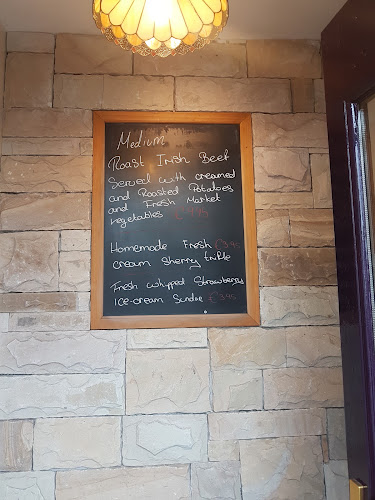 Medium
Roast Irish Beef
Served with creamed
and Roasted Potatoes
and Fresh Market
vegetables € 9.95
Homemade Fresh €3.95
cream Sherry trifle
Fresh whipped Strawberry
ice-cream Sundae €3.95